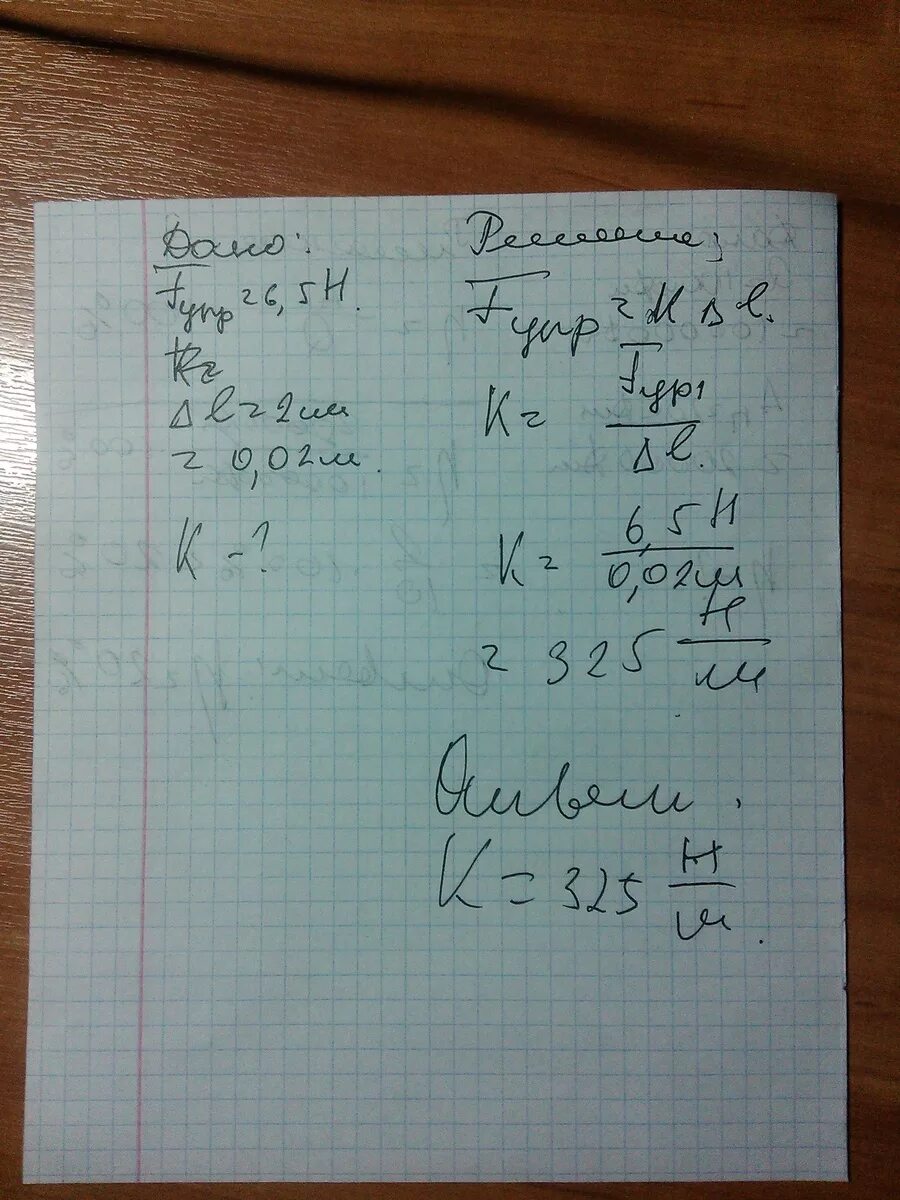 Дано:
Fупр = 6,5Н.
K=
Δl = 2см
= 0,02м.
K - ?
Решение:
Fупр = K Δl.
K = Fупр / Δl.
K = 6,5Н / 0,02м
= 325 Н/м
Ответ:
K = 325 Н/м.